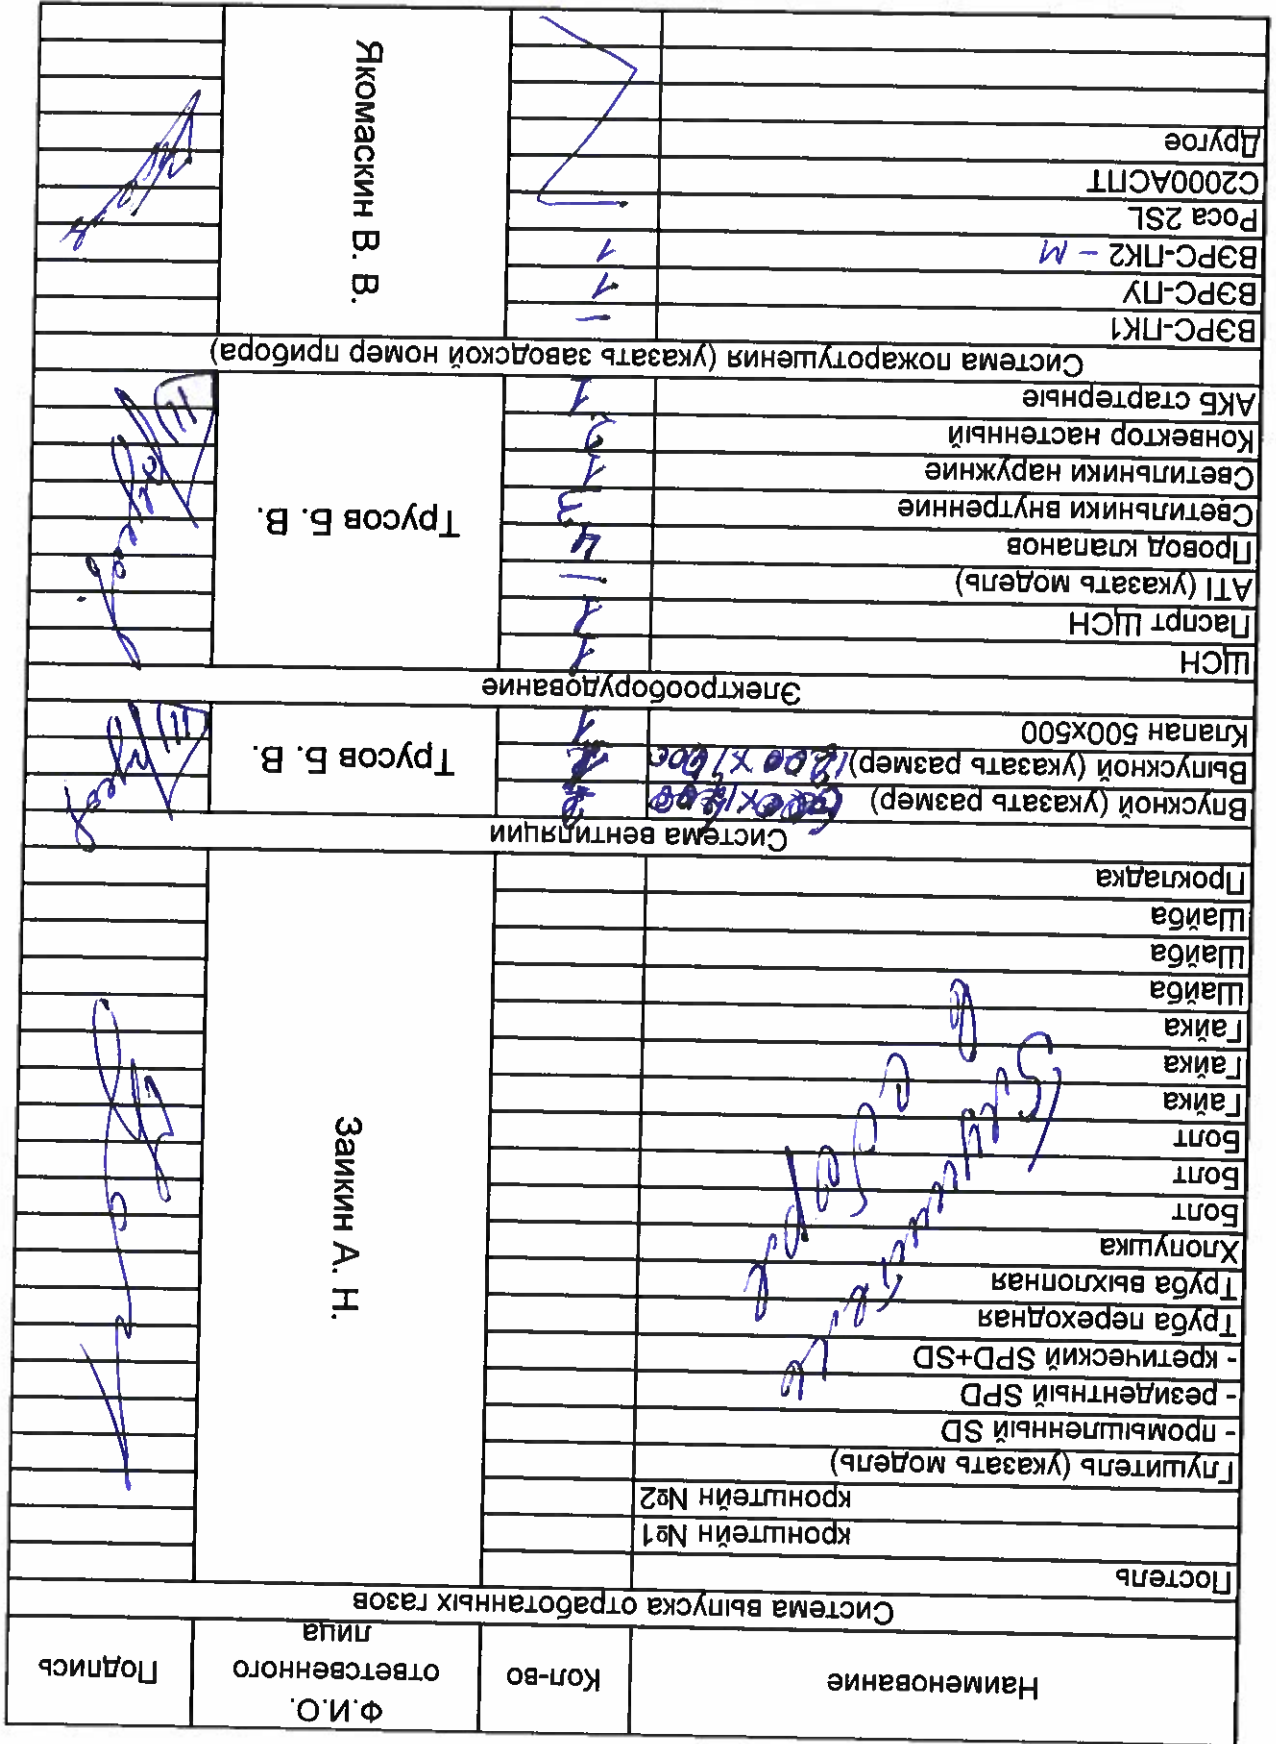 Наименование Кол-во Ф.И.О. ответсвенного лица Подпись
Система выпуска отработанных газов
Постель
кронштейн №1
кронштейн №2
Глушитель (указать модель)
- промышленный SD
- резидентный SPD
- кретический SPD+SD
Труба переходная
Труба выхлопная
Хлопушка
Болт
Болт
Болт
Гайка
Гайка
Гайка
Шайба
Шайба
Шайба
Прокладка
Заикин А. Н.
Система вентиляции
Впускной (указать размер)
Выпускной (указать размер) 1200 х
Клапан 500х500 1
Трусов Б. В.
Электрооборудование
ЩСН 1
Паспрт ЩСН 1
ATI (указать модель) –
Провод клапанов 4
Светильники внутренние 3
Светильники наружние 1
Конвектор настенный
АКБ стартерные 1
Трусов Б. В.
Система пожаротушения (указать заводской номер прибора)
ВЭРС-ПК1 –
ВЭРС-ПУ 1
ВЭРС-ПК2 – М 1
Роса 2SL
С2000АСПТ
Другое
Якомаскин В. В.